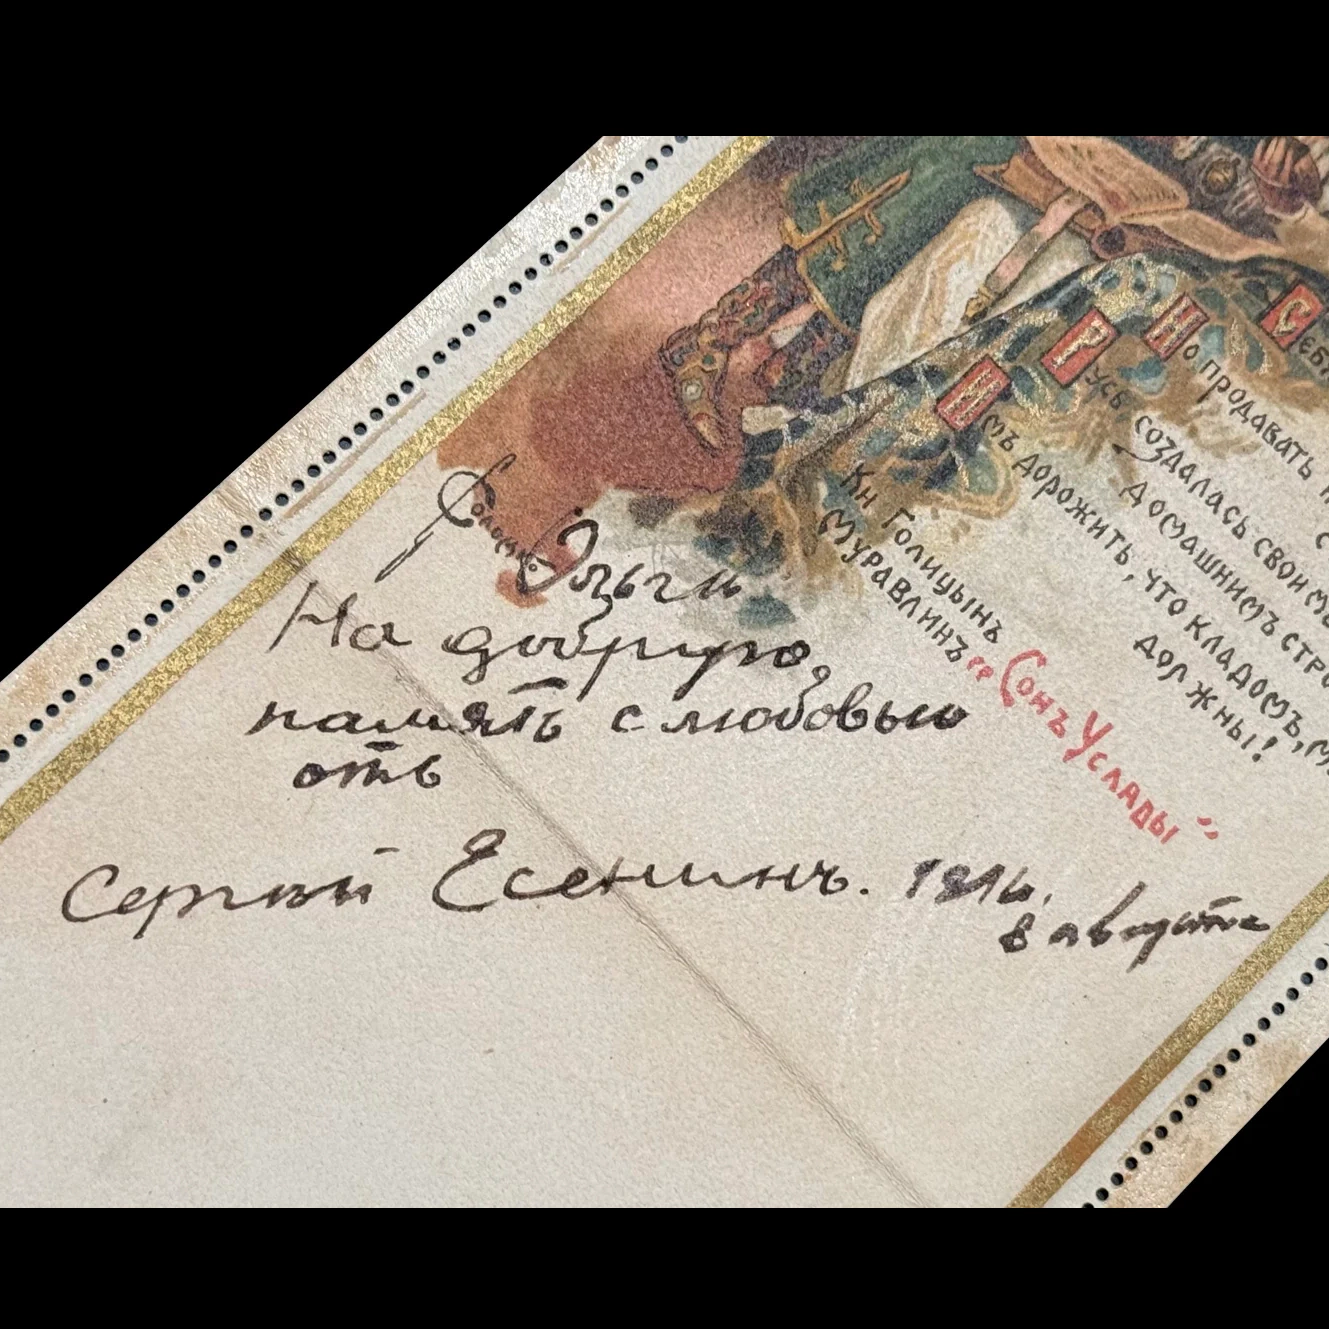 Но продавать
Русь создалась своимъ
домашнимъ
Имъ дорожить, что кладомъ,
должны!
Кн Голицынъ
Муравлинъ
"Сонъ Услады"
На добрую
память с любовью
отъ
Сергѣй Есенинъ. 1916.
8 августа